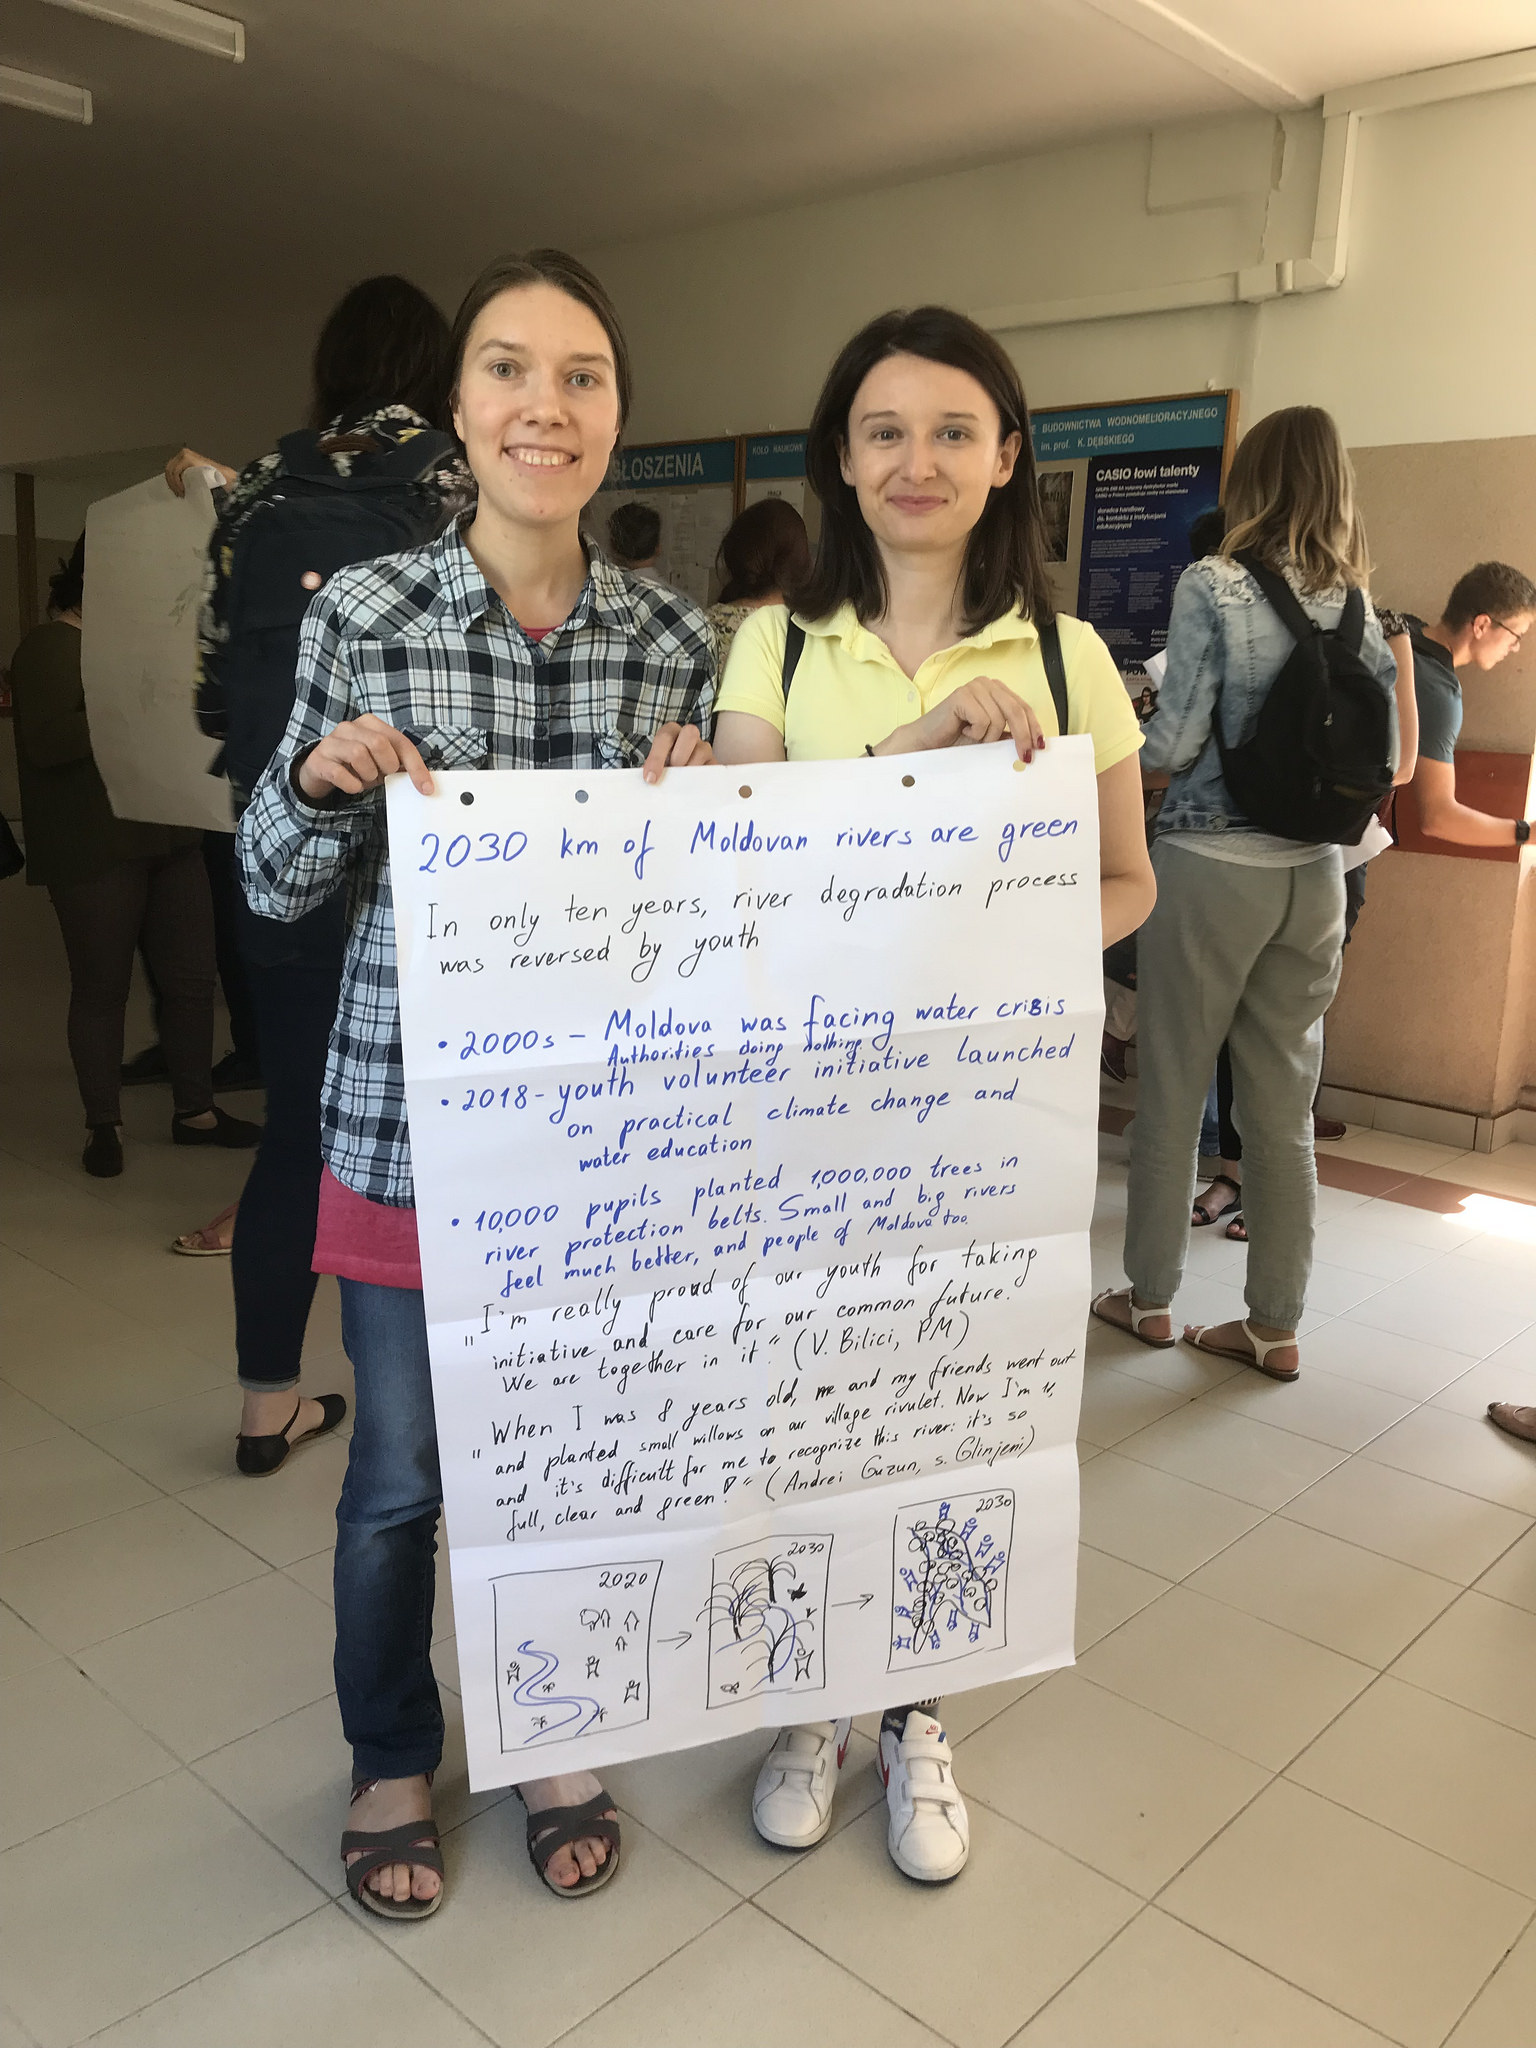 GŁOSZENIA
KOŁO NAUKOWE
E BUDOWNICTWA WODNOMELIORACYJNEGO
im. prof. K. DĘBSKIEGO
CASIO łowi talenty
doradca handlowy
ds. kontaktu z instytucjami
edukacyjnymi
2030 km of Moldovan rivers are green
In only ten years, river degradation process
was reversed by youth
• 2000s – Moldova was facing water crisis
Authorities doing nothing
• 2018 - youth volunteer initiative launched
on practical climate change and
water education
• 10,000 pupils planted 1,000,000 trees in
river protection belts. Small and big rivers
feel much better, and people of Moldova too.
"I'm really proud of our youth for taking
initiative and care for our common future.
We are together in it." (V. Bilici, PM)
"When I was 8 years old, me and my friends went out
and planted small willows on our village rivulet. Now I'm 11,
and it's difficult for me to recognize this river: it's so
full, clear and green!" (Andrei Guzun, s. Glinjeni)
2020
2030
2030